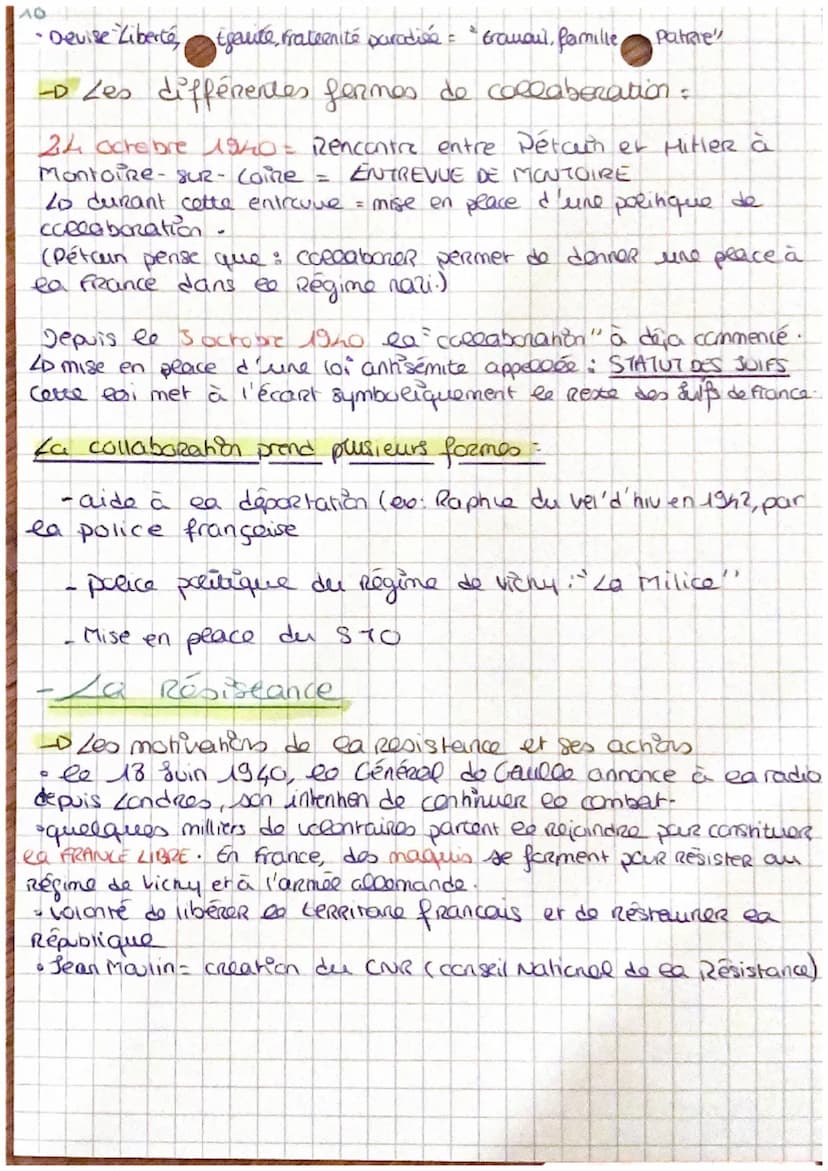 10
· Devise "Liberté, Égalité, Fraternité parodiée = "travail, famille Patrie"
→ Les différentes formes de collaboration :
24 octobre 1940 = Rencontre entre Pétain et Hitler à
Montoire-sur-Loire = ENTREVUE DE MONTOIRE
↳ durant cette entrevue = mise en place d'une politique de
collaboration.
(Pétain pense que : collaborer permet de donner une place à
la France dans le Régime nazi.)
Depuis le 3 octobre 1940 la "collaboration" à déja commencé.
↳ mise en place d'une loi antisémite appellée : STATUT DES JUIFS
Cette loi met à l'écart symboliquement le reste des Juifs de France.
La collaboration prend plusieurs formes :
- aide à la déportation (ex: Raphle du vel'd'hiv en 1942, par
la police française
- police politique du Régime de Vichy : "La Milice"
- Mise en place du STO
- La Résistance
→ Les motivations de la Resistance et ses actions
• le 18 Juin 1940, le Général de Gaulle annonce à la radio
depuis Londres, son intention de continuer le combat.
• quelques milliers de volontaires partent le rejoindre pour constituer
la FRANCE LIBRE. En France, des maquis se forment pour résister au
Régime de Vichy et à l'armée allemande.
• volonté de libérer le territoire français et de restaurer la
République
• Jean Moulin = creation du CNR (conseil National de la Résistance)